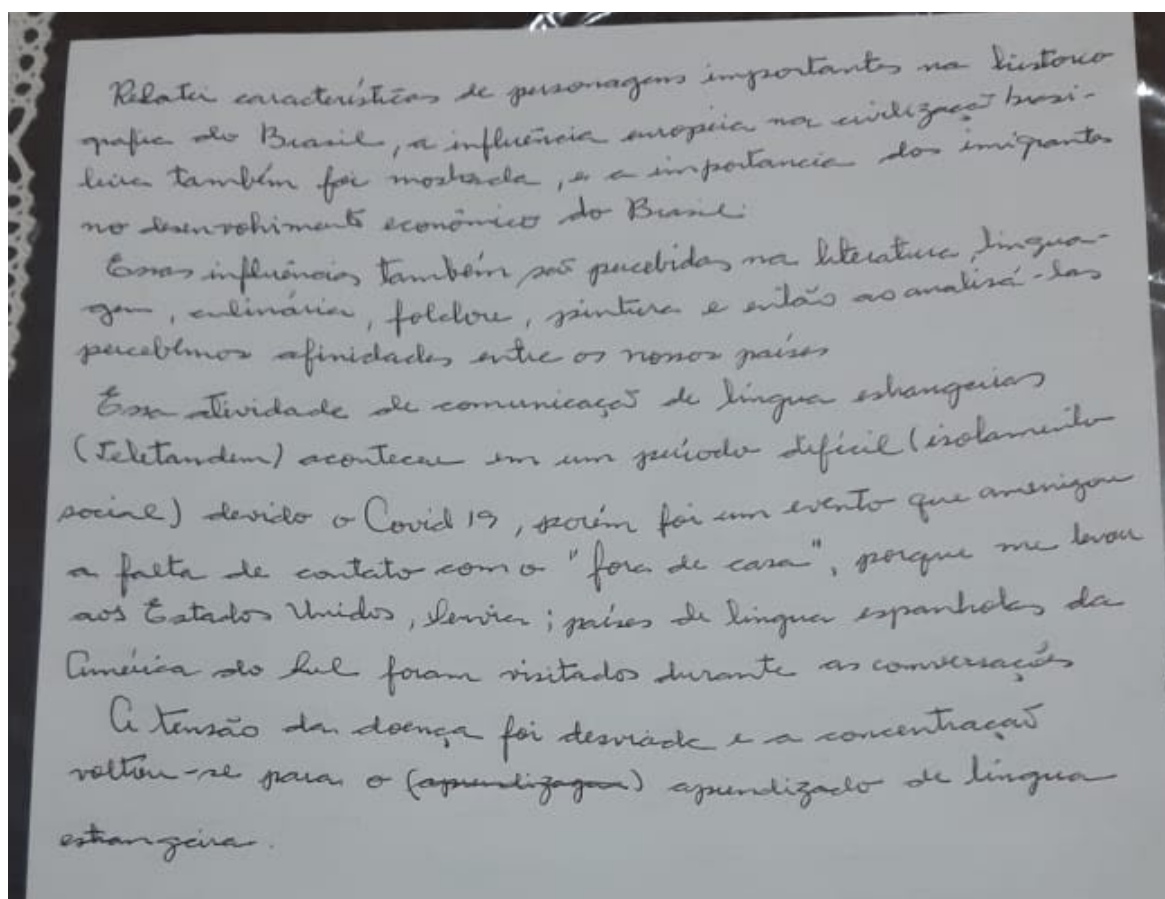 Relatei características de personagens importantes na historio
grafia do Brasil, a influência europeia na civilização brasi-
leira também foi mostrada, e a importancia dos imigrantes
no desenvolvimento econômico do Brasil.
Essas influências também são percebidas na literatura, lingua-
gem, culinária, folclore, pintura e então ao analisá-las
percebemos afinidades entre os nossos países
Essa atividade de comunicação de língua estrangeiras
(Teletandem) aconteceu em um período difícil (isolamento
social) devido o Covid 19, porém foi um evento que amenizou
a falta de contato com o "fora de casa", porque me levou
aos Estados Unidos, países de língua espanholas da
América do Sul foram visitados durante as conversações
A tensão da doença foi desviada e a concentração
voltou-se para o (aprendizagem) aprendizado de língua
estrangeira.